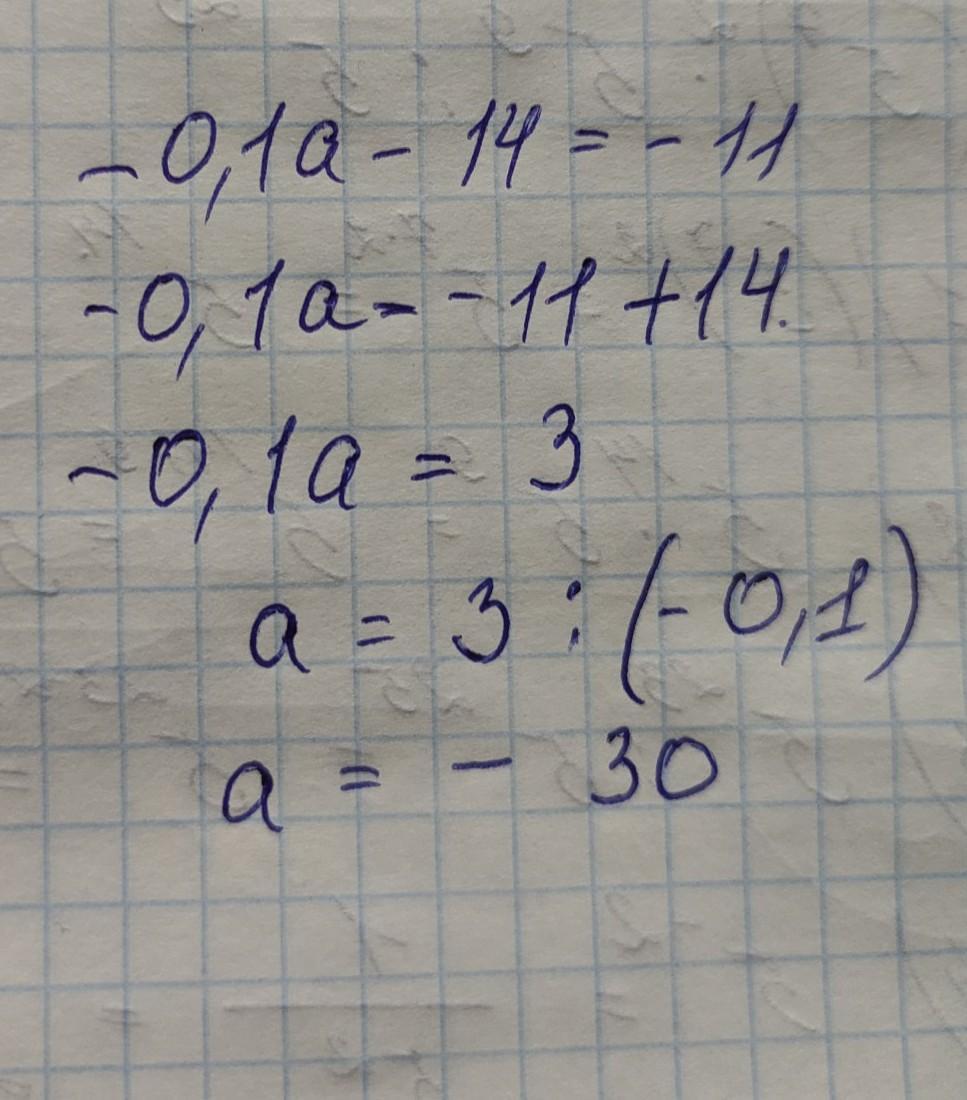 -0,1a - 14 = - 11
-0,1a = -11 + 14.
-0,1a = 3
a = 3 : (- 0,1)
a = - 30